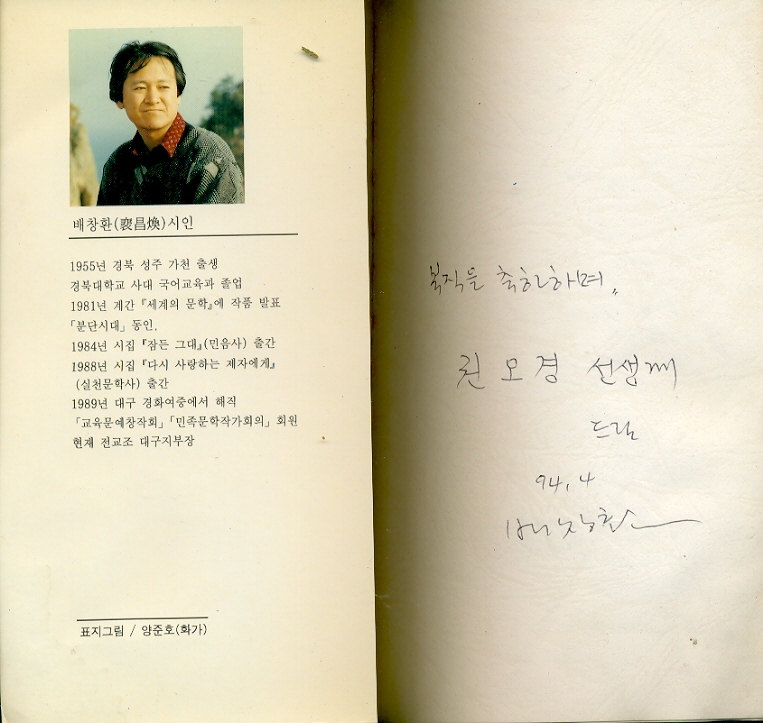 배창환(裵昌煥)시인
1955년 경북 성주 가천 출생
경북대학교 사대 국어교육과 졸업
1981년 계간 『세계의 문학』에 작품 발표
「분단시대」 동인.
1984년 시집 『잠든 그대』(민음사) 출간
1988년 시집 『다시 사랑하는 제자에게』
(실천문학사) 출간
1989년 대구 경화여중에서 해직
「교육문예창작회」 「민족문학작가회의」 회원
현재 전교조 대구지부장
표지그림 / 양준호(화가)
복직을 축하하며,,
권 오 경 선생께
드림
94, 4
배창환